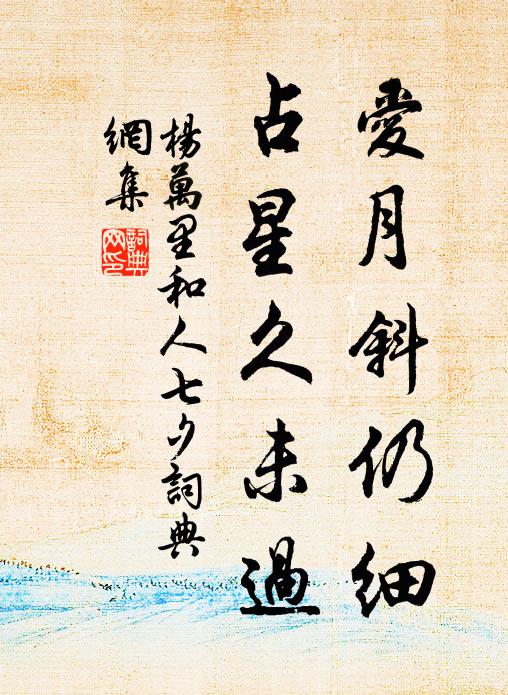 愛月斜仍細
占星久未過
楊萬里和人七夕詞典
網集
詞典
网印